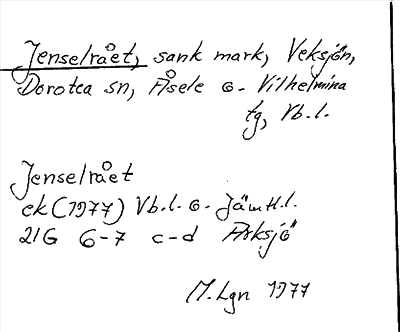 Jenselrået, sank mark, Veksjön,
Dorotea sn, Åsele o. Vilhelmina
tg, Vb.l.
Jenselrået
ek (1977) Vb.l. o. Jämtl.l.
21G 6-7 c-d Arksjö
M.Lgn 1977